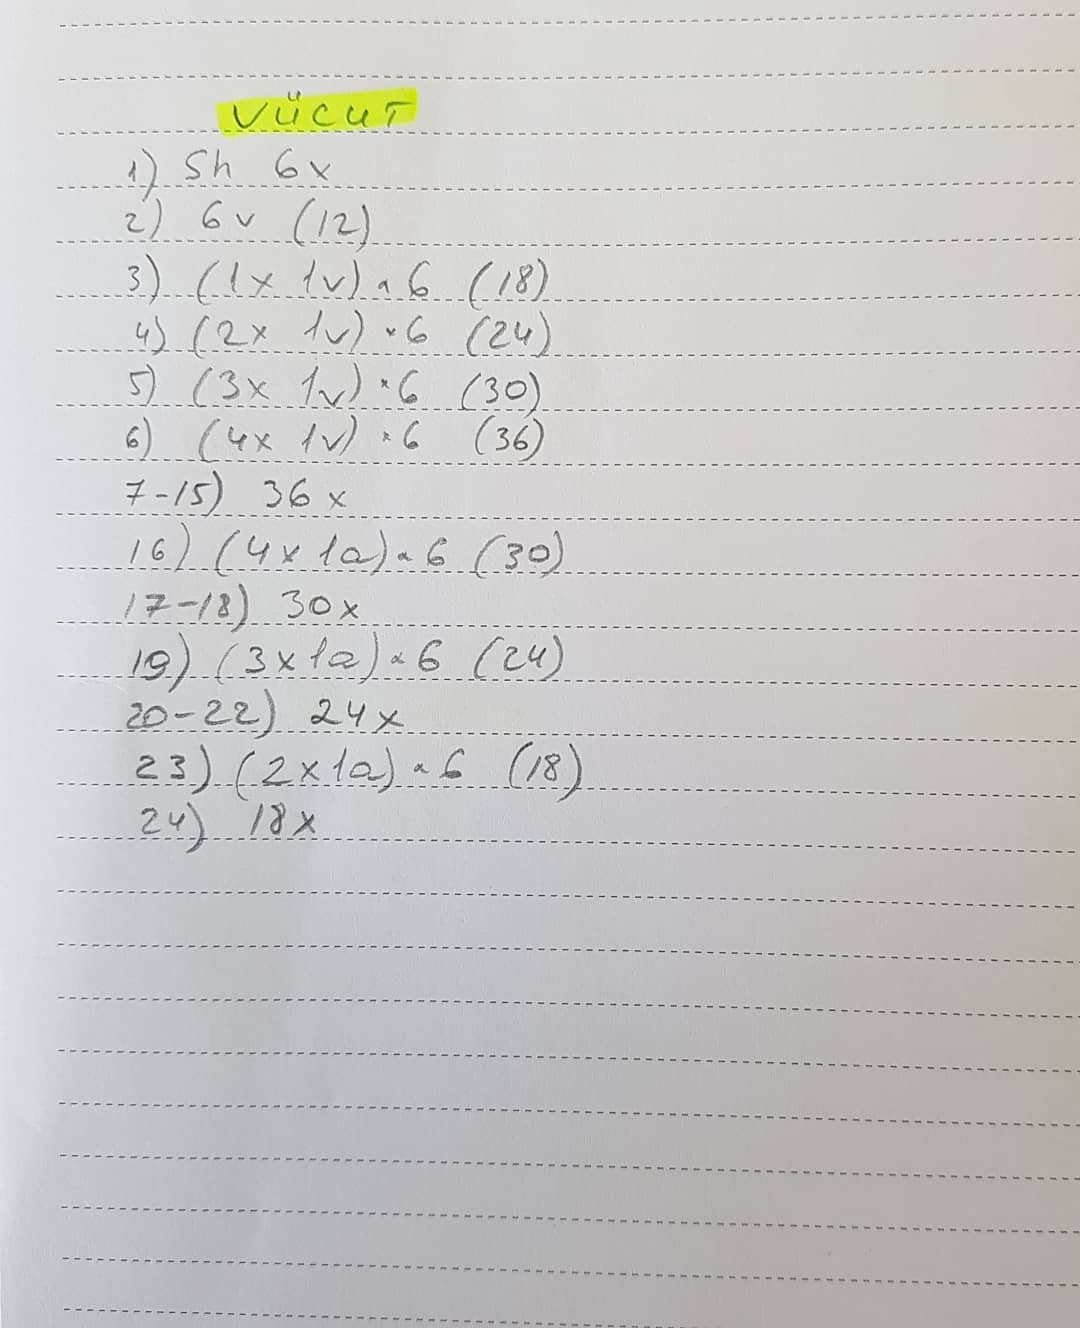 VÜCUT
1) Sh 6x
2) 6v (12)
3) (1x 1v) * 6 (18)
4) (2x 1v) * 6 (24)
5) (3x 1v) * 6 (30)
6) (4x 1v) * 6 (36)
7-15) 36x
16) (4x 1a) * 6 (30)
17-18) 30x
19) (3x 1a) * 6 (24)
20-22) 24x
23) (2x 1a) * 6 (18)
24) 18x